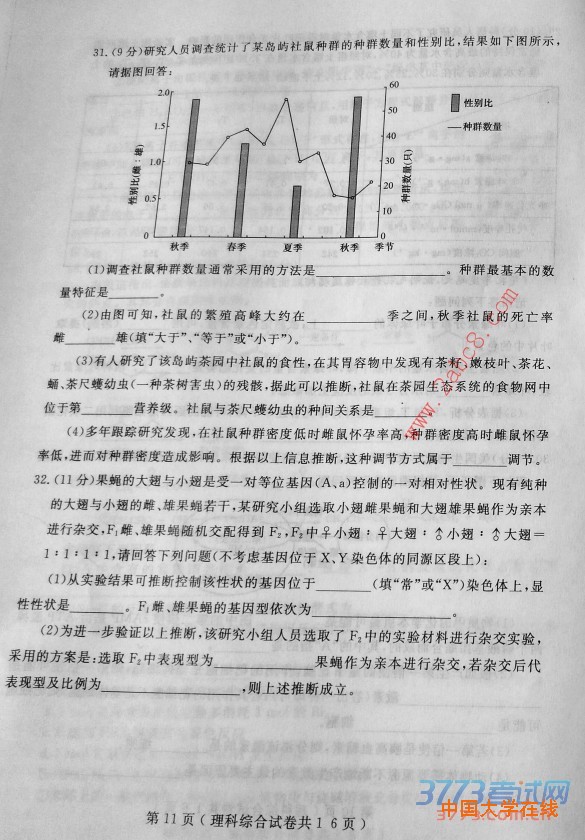 31.(9分)研究人员调查统计了某岛屿社鼠种群的种群数量和性别比,结果如下图所示,
请据图回答:
2.0
1.5
1.0
0.5
0
性别比(雌:雄)
60
50
40
30
20
10
0
种群数量(只)
性别比
种群数量
秋季 春季 夏季 秋季 季节
(1)调查社鼠种群数量通常采用的方法是________。种群最基本的数
量特征是________。
(2)由图可知,社鼠的繁殖高峰大约在________季之间,秋季社鼠的死亡率
雌________雄(填“大于”、“等于”或“小于”)。
(3)有人研究了该岛屿茶园中社鼠的食性,在其胃容物中发现有茶籽、嫩枝叶、茶花、
蛹、茶尺蠖幼虫(一种茶树害虫)的残骸,据此可以推断,社鼠在茶园生态系统的食物网中
位于第________营养级。社鼠与茶尺蠖幼虫的种间关系是
(4)多年跟踪研究发现,在社鼠种群密度低时雌鼠怀孕率高,种群密度高时雌鼠怀孕
率低,进而对种群密度造成影响。根据以上信息推断,这种调节方式属于________调节。
32.(11分)果蝇的大翅与小翅是受一对等位基因(A、a)控制的一对相对性状。现有纯种
的大翅与小翅的雌、雄果蝇若干,某研究小组选取小翅雌果蝇和大翅雄果蝇作为亲本
进行杂交,F₁雌、雄果蝇随机交配得到F₂,F₂中♀小翅:♀大翅:♂小翅:♂大翅=
1:1:1:1,请回答下列问题(不考虑基因位于X、Y染色体的同源区段上):
(1)从实验结果可推断控制该性状的基因位于________(填“常”或“X”)染色体上,显
性性状是________。F₁雌、雄果蝇的基因型依次为________。
(2)为进一步验证以上推断,该研究小组人员选取了F₂中的实验材料进行杂交实验,
采用的方案是:选取F₂中表现型为________果蝇作为亲本进行杂交,若杂交后代
表现型及比例为________,则上述推断成立。
第11页(理科综合试卷共16页)
www.2abc8.com
3773考试网
中国大学在线